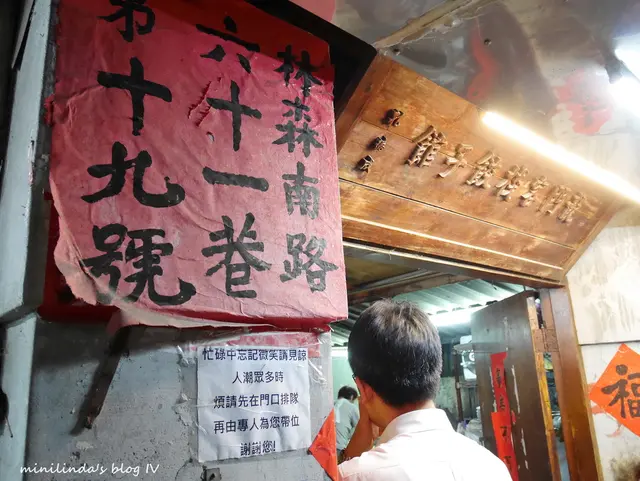 林森南路
六十一巷
第十九號
館子餃
忙碌中忘記微笑請見諒
人潮眾多時
煩請先在門口排隊
再由專人為您帶位
謝謝您!
福
minilinda's blog IV